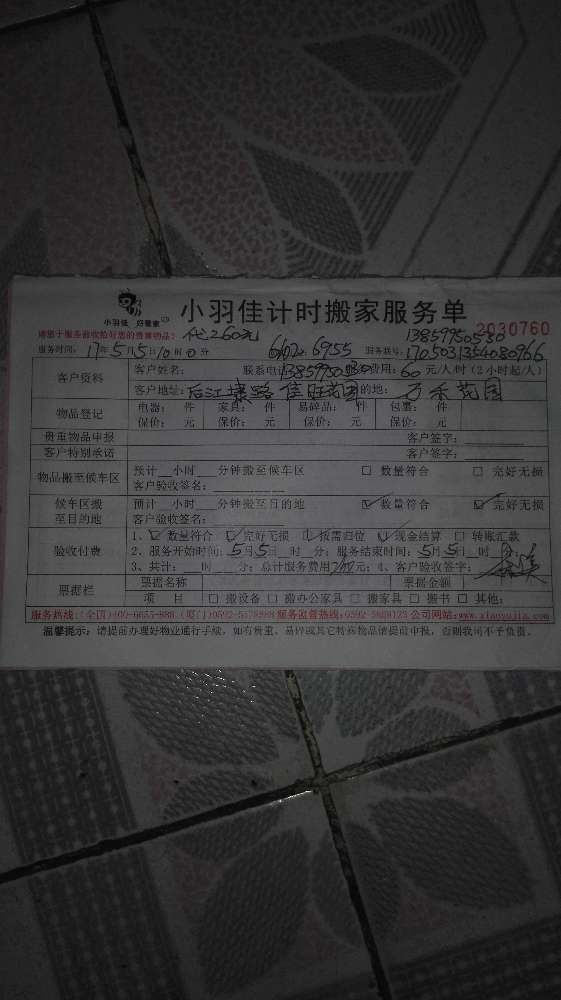 小羽佳计时搬家服务单
小羽佳 好搬家
请您于服务前收拾好您的贵重物品! 代260元 13859950580 2030760
服务时间: 17年5月5日10时0分 6955 服务账号: 1705031354080966
客户资料 客户姓名: 联系电话: 13859950580 费用: 60元/人/时(2小时起/人)
客户地址: 后江埭路佳旺花园 目的地: 万禾花园
物品登记 电器: 件 家具: 件 易碎品: 件 包裹: 件
保价: 元 保价: 元 保价: 元 保价: 元
贵重物品申报 客户签字:
客户特别承诺 客户签字:
物品搬至候车区 预计 小时 分钟搬至候车区 □ 数量符合 □ 完好无损
客户验收签名:
候车区搬至目的地 预计 小时 分钟搬至目的地 ☑ 数量符合 ☑ 完好无损
客户验收签名:
验收付费 1、☑ 数量符合 ☑ 完好无损 ☑ 按需归位 ☑ 现金结算 □ 转账汇款
2、服务开始时间: 5月5日 时 分; 服务结束时间: 5月5日 时
3、共计: 时 分; 总计服务费用 元; 4、客户验收签字:
票据栏 票据名称 票据金额
项 目 □ 搬设备 □ 搬办公家具 □ 搬家具 □ 搬书 □ 其他:
服务热线:(全国)400-6655-888. (厦门)0592-5178888 服务监督热线:0592-5889123 公司网站:www.xiaoyujia.com
温馨提示: 请提前办理好物业通行手续, 如有贵重、易碎或其它特殊物品请提前申报, 否则我司不予负责。